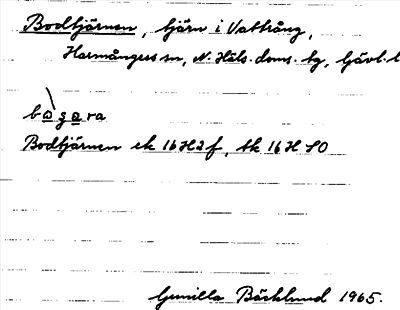 Bodtjärnen, tjärn i Vattrång,
Harmångers sn, N. Häls. doms. tg, Gävl. l
bògara
Bodtjärnen ek 16H2f, tk 16H SO
Gunilla Bäcklund 1965.